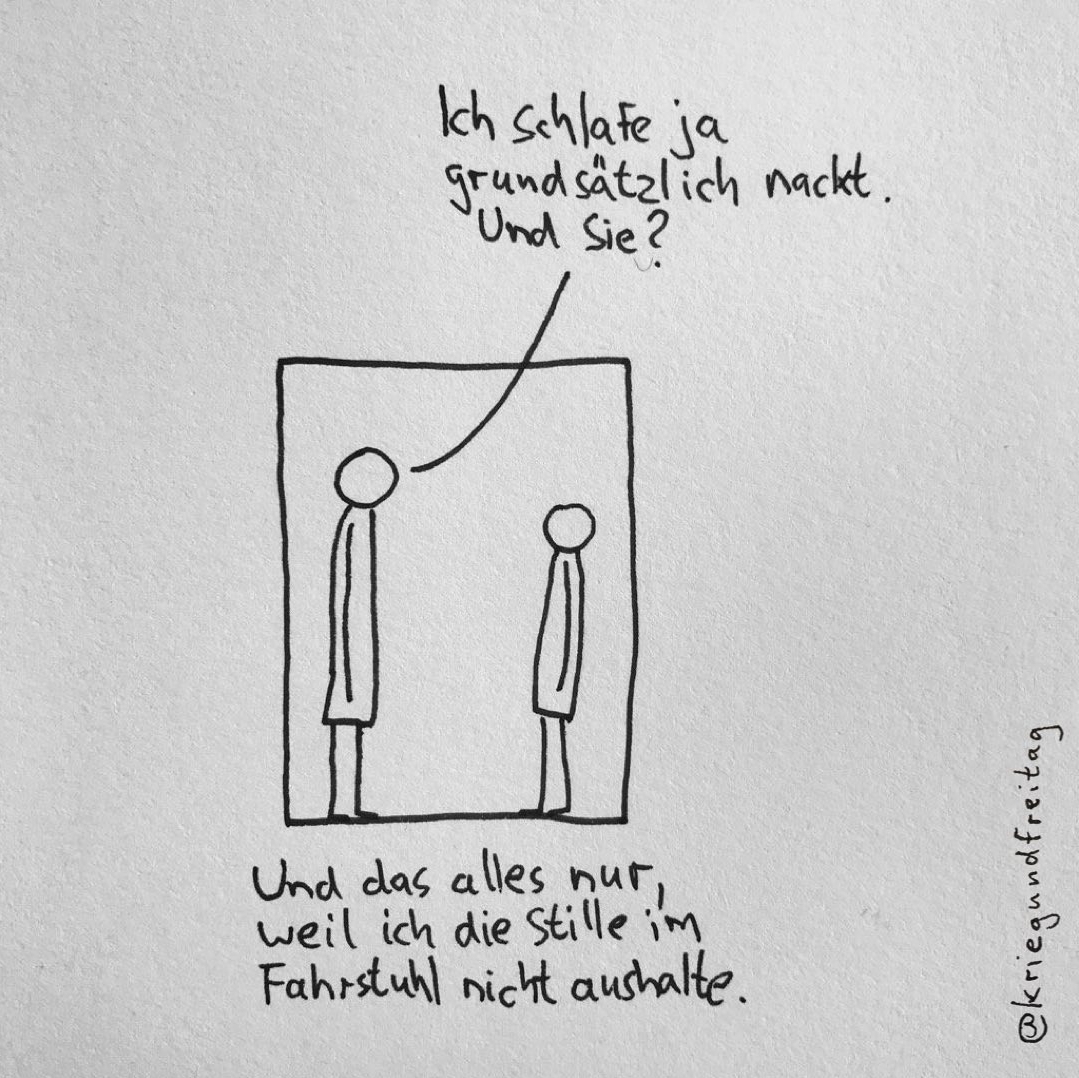 Ich schlafe ja
grundsätzlich nackt.
Und Sie?
Und das alles nur,
weil ich die Stille im
Fahrstuhl nicht aushalte.
@kriegundfreitag